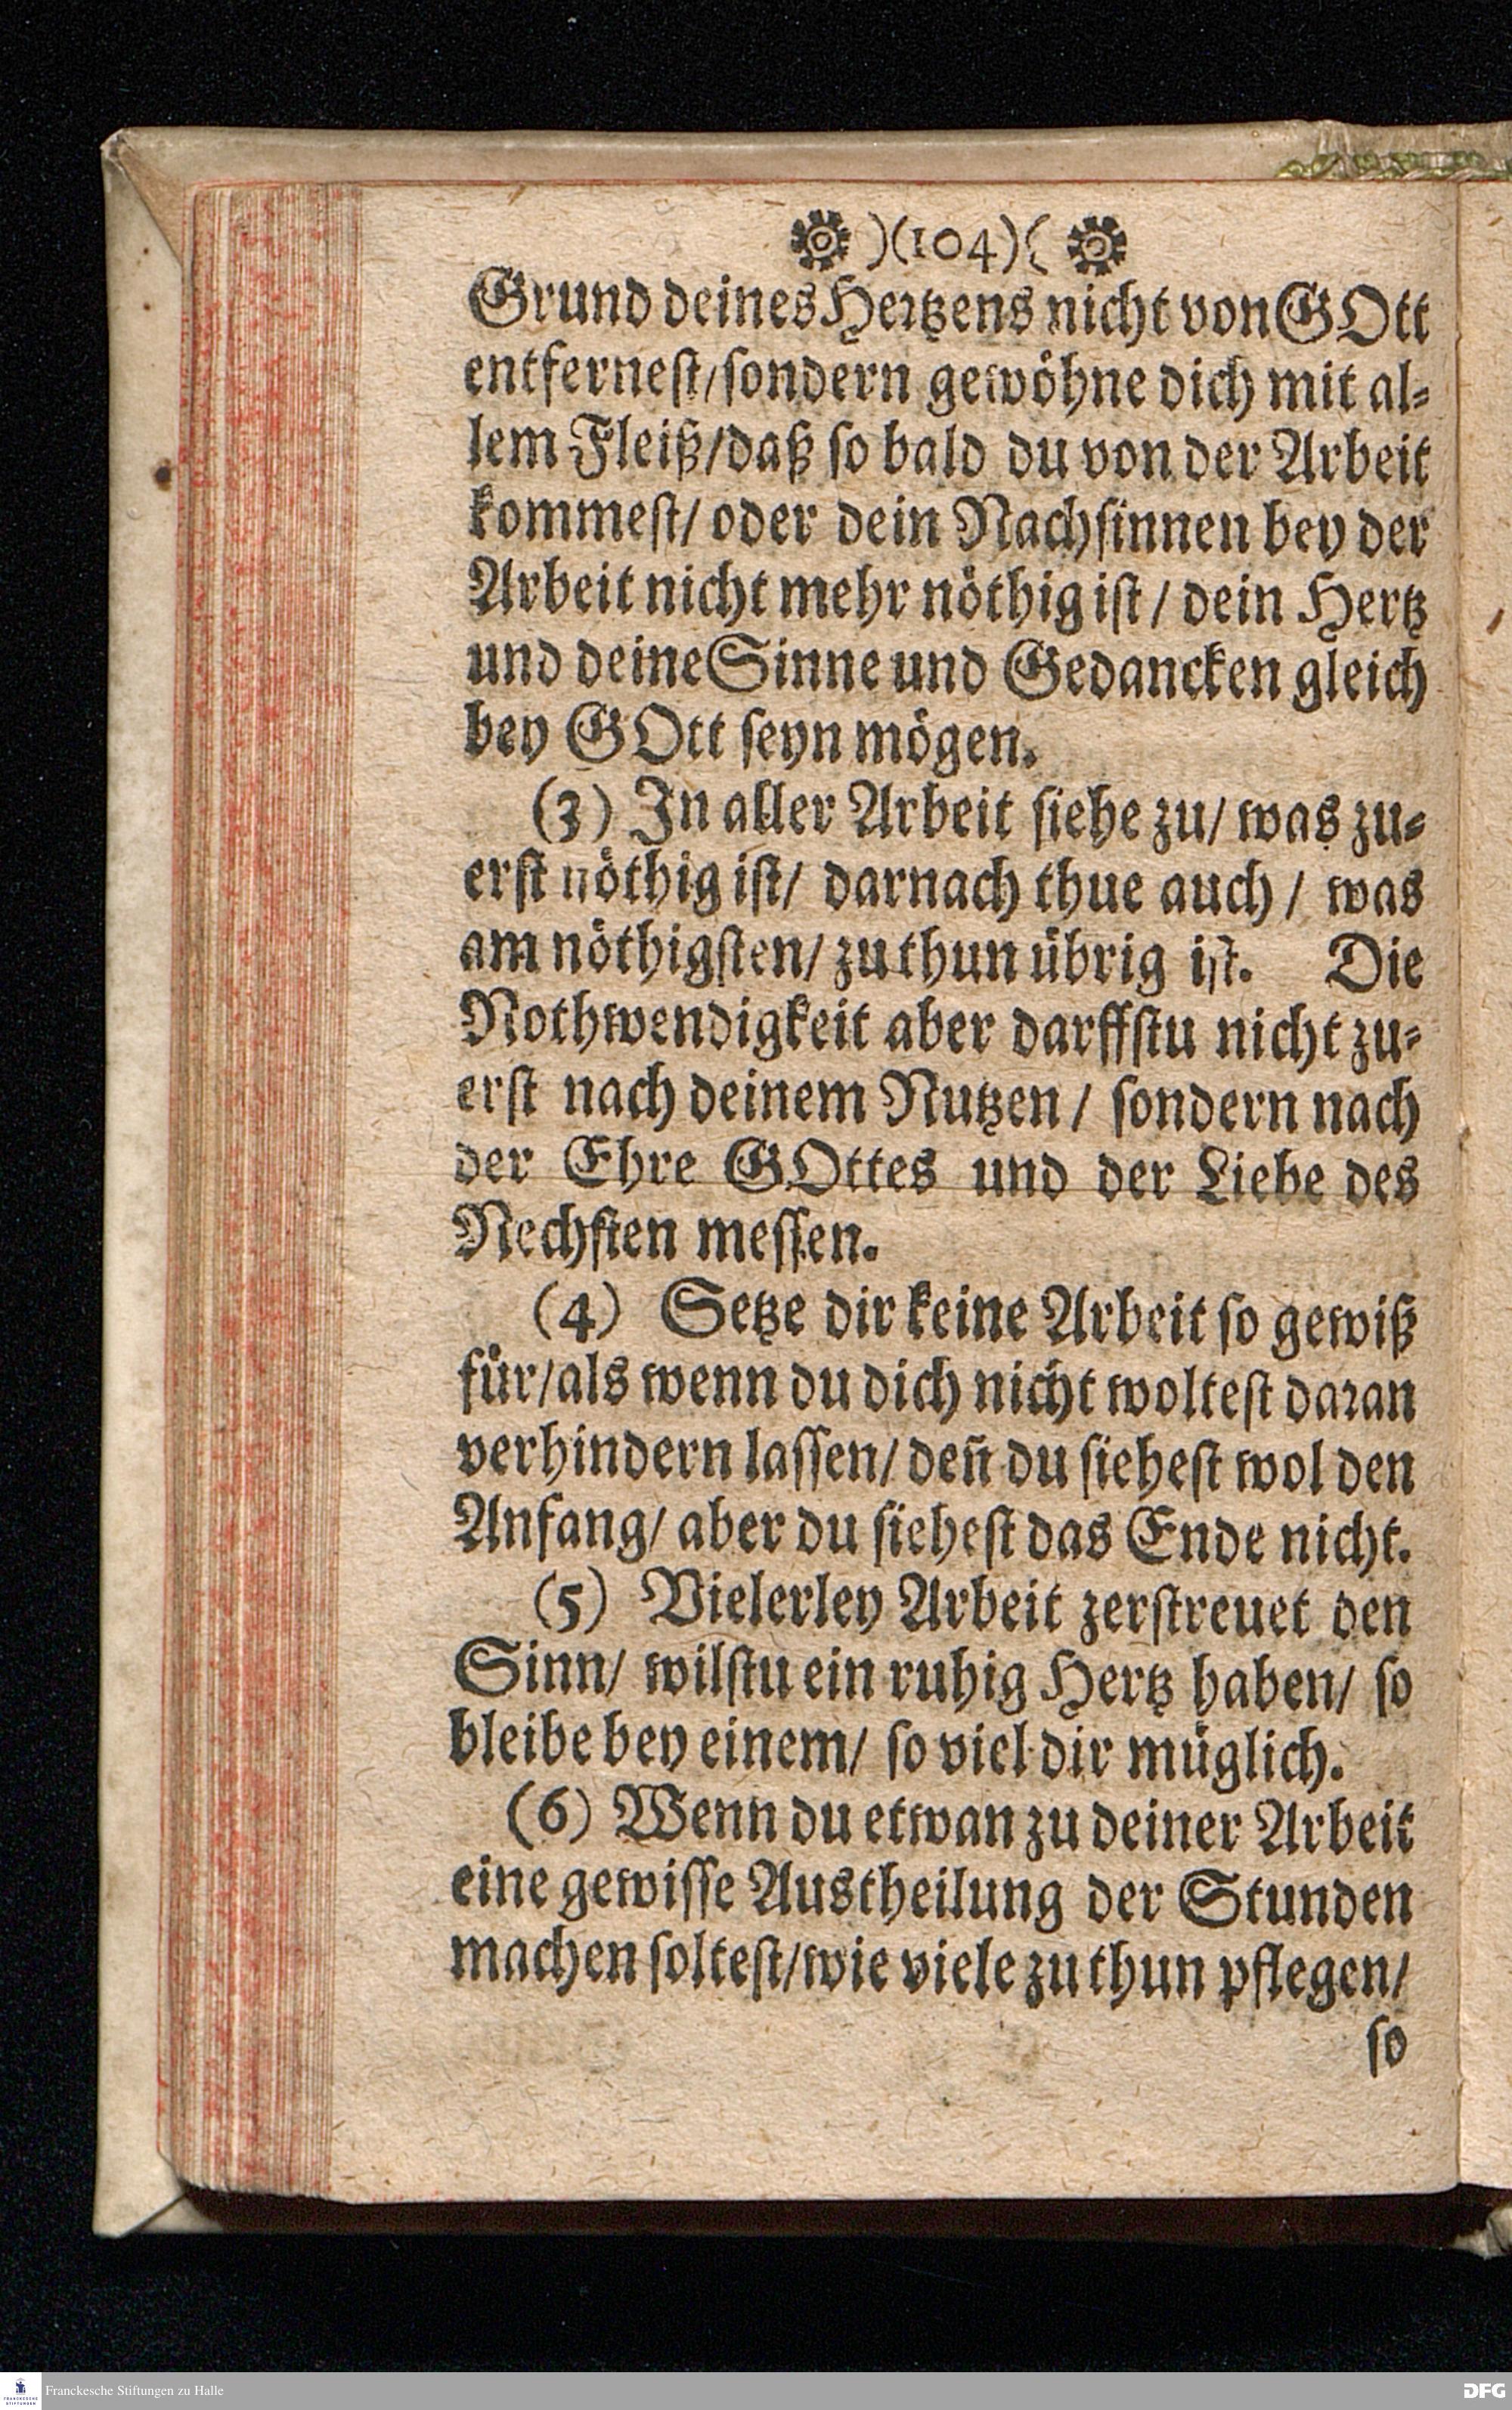 )(104)(
Grund deines Hertzens nicht von GOtt
entferneſt/ ſondern gewöhne dich mit al-
lem Fleiß/ daß ſo bald du von der Arbeit
kommeſt/ oder dein Nachſinnen bey der
Arbeit nicht mehr nöthig iſt / dein Hertz
und deine Sinne und Gedancken gleich
bey GOtt ſeyn mögen.
(3) In aller Arbeit ſiehe zu/ was zu-
erſt nöthig iſt/ darnach thue auch / was
am nöthigſten/ zu thun übrig iſt. Die
Nothwendigkeit aber darffſtu nicht zu-
erſt nach deinem Nutzen / ſondern nach
der Ehre GOttes und der Liebe des
Nechſten meſſen.
(4) Setze dir keine Arbeit ſo gewiß
für/ als wenn du dich nicht wolteſt daran
verhindern laſſen/ deñ du ſieheſt wol den
Anfang/ aber du ſieheſt das Ende nicht.
(5) Vielerley Arbeit zerſtreuet den
Sinn/ wilſtu ein ruhig Hertz haben/ ſo
bleibe bey einem/ ſo viel dir müglich.
(6) Wenn du etwan zu deiner Arbeit
eine gewiſſe Austheilung der Stunden
machen ſolteſt/ wie viele zu thun pflegen/
ſo
Franckesche Stiftungen zu Halle
DFG